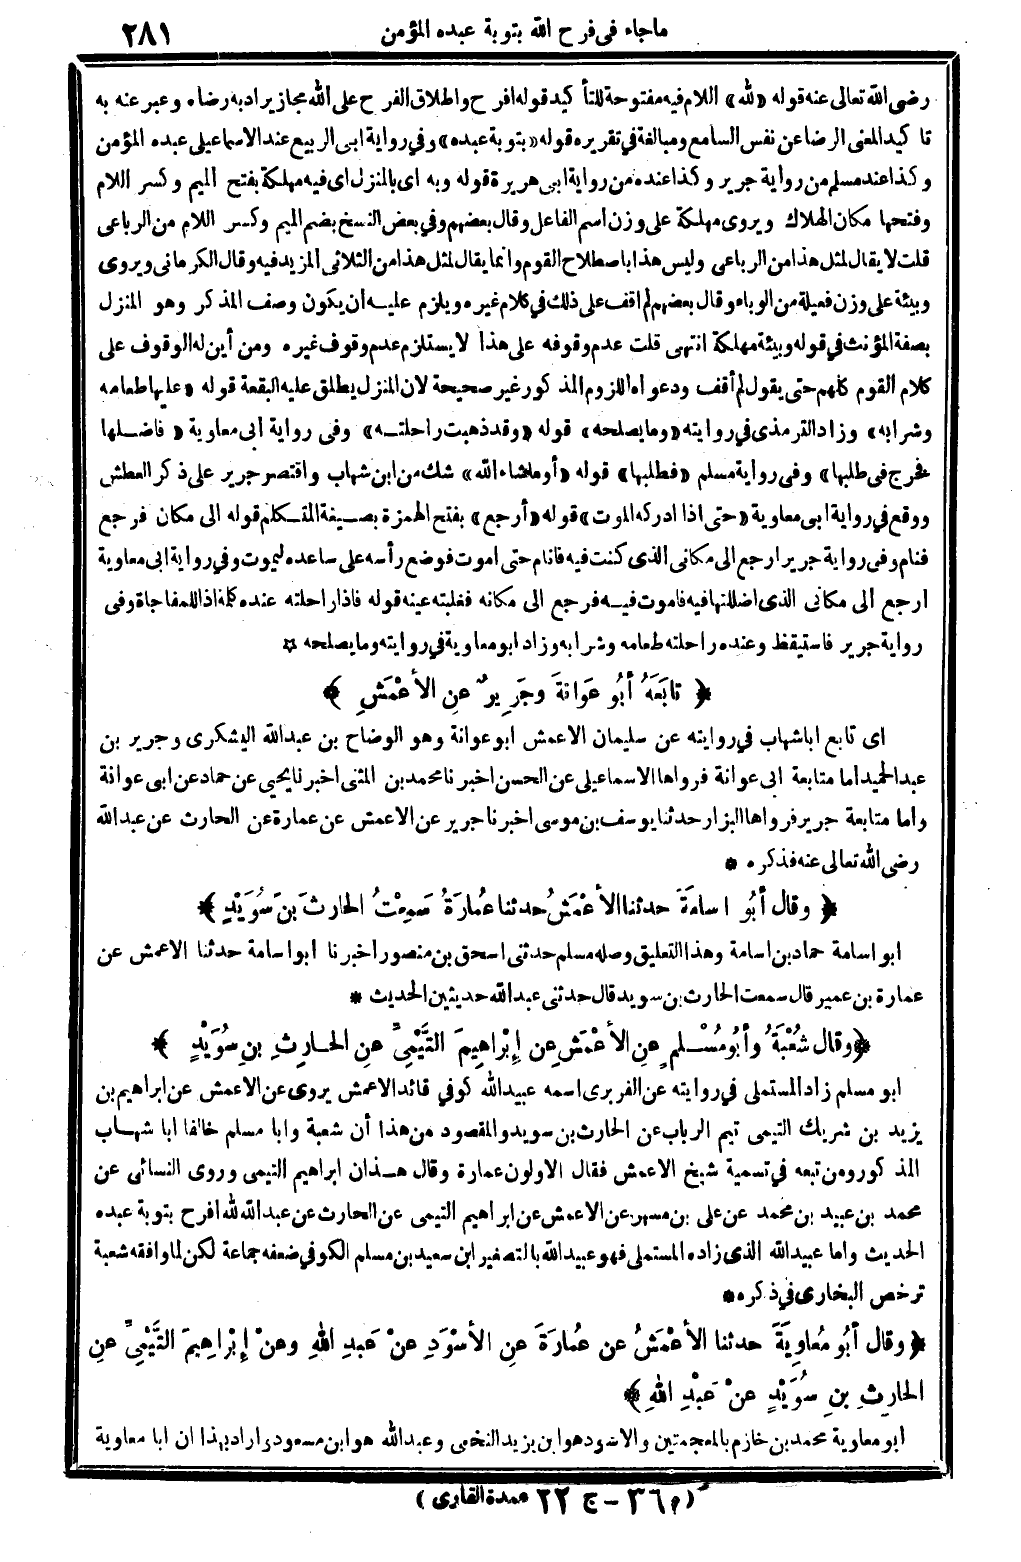 ماجاء فى فرح الله بتوبة عبده المؤمن ٢٨١
رضى الله تعالى عنه قوله «لله» اللام فيه مفتوحة للتأكيد قوله افرح واطلاق الفرح على الله مجاز يراد به رضاه وعبر عنه به
تاكيد المعنى الرضا عن نفس السامع ومبالغة في تقريره قوله «بتوبة عبده» وفي رواية ابى الربيع عند الاسماعيلى عبده المؤمن
وكذا عند مسلم من رواية جرير وكذا عنده من رواية ابى هريرة قوله وبه اى بالمنزل اى فيه مهلكة بفتح الميم وكسر اللام
وفتحها مكان الهلاك ويروى مهلكة على وزن اسم الفاعل وقال بعضهم وفي بعض النسخ بضم الميم وكسر اللام من الرباعى
قلت لا يقال لمثل هذا من الرباعى وليس هذا باصطلاح القوم وانما يقال لمثل هذا من الثلاثى المزيد فيه وقال الكرمانى ويروى
وبيئة على وزن فعيلة من الوباء وقال بعضهم لم اقف على ذلك في كلام غيره ويلزم عليه ان يكون وصف المذكر وهو المنزل
بصفة المؤنث في قوله وبيئة مهلكة انتهى قلت عدم وقوفه على هذا لا يستلزم عدم وقوف غيره ومن أين له الوقوف على
كلام القوم كلهم حتى يقول لم أقف ودعواه اللزوم المذكور غير صحيحة لان المنزل يطلق عليه البقعة قوله «عليها طعامه
وشرابه» وزاد الترمذى في روايته «وما يصلحه» قوله «وقد ذهبت راحلته» وفى رواية أبى معاوية «فاضلها
فخرج فى طلبها» وفى رواية مسلم «فطلبها» قوله «أو ماشاء الله» شك من ابن شهاب واقتصر جرير على ذكر العطش
ووقع في رواية ابى معاوية «حتى اذا ادركه الموت» قوله «أرجع» بفتح الهمزة بصيغة المتكلم قوله الى مكان فرجع
فنام وفى رواية جرير ارجع الى مكانى الذى كنت فيه فانام حتى اموت فوضع رأسه على ساعده ليموت وفي رواية ابى معاوية
ارجع الى مكانى الذى اضللتها فيه فاموت فيه فرجع الى مكانه فغلبته عينه قوله فاذا راحلته عنده كلمة اذا للمفاجاة وفى
رواية جرير فاستيقظ وعنده راحلته طعامه وشرابه وزاد ابو معاوية في روايته وما يصلحه ☆
﴿ تابَعَهُ أبُو عَوَانَةَ وجَرِيرٌ عنِ الأعْمَشِ ﴾
اى تابع اباشهاب في روايته عن سليمان الاعمش ابو عوانة وهو الوضاح بن عبدالله اليشكرى وجرير بن
عبد الحميد اما متابعة ابى عوانة فرواها الاسماعيلى عن الحسن اخبرنا محمد بن المثنى اخبرنا يحيى عن حماد عن ابى عوانة
وأما متابعة جرير فرواها البزار حدثنا يوسف بن موسى اخبرنا جرير عن الاعمش عن عمارة عن الحارث عن عبدالله
رضى الله تعالى عنه فذكره *
﴿ وقال أبُو اسامَةَ حدثنا الأعْمَشُ حدثنا عُمارَةُ سَمِعْتُ الحارثَ بنَ سُوَيْدٍ ﴾
ابو اسامة حماد بن اسامة وهذا التعليق وصله مسلم حدثنى اسحق بن منصور اخبرنا ابو اسامة حدثنا الاعمش عن
عمارة بن عمير قال سمعت الحارث بن سويد قال حدثنى عبدالله حديثين الحديث *
﴿وقال شُعْبَةُ وأبُو مُسْلمٍ عنِ الأعْمَشِ عن إبْراهِيمَ التَّيْمِيِّ عنِ الحارِثِ بنِ سُوَيْدٍ ﴾
ابو مسلم زاد المستملى في روايته عن الفربرى اسمه عبيدالله كوفي قائد الاعمش يروى عن الاعمش عن ابراهيم بن
يزيد بن شريك التيمى تيم الرباب عن الحارث بن سويد والمقصود من هذا أن شعبة وابا مسلم خالفا ابا شهاب
المذكور ومن تبعه في تسمية شيخ الاعمش فقال الاولون عمارة وقال هذان ابراهيم التيمى وروى النسائى عن
محمد بن عبيد بن محمد عن على بن مسهر عن الاعمش عن ابراهيم التيمى عن الحارث عن عبدالله لله افرح بتوبة عبده
الحديث واما عبيدالله الذى زاده المستملى فهو عبيدالله بالتصغير ابن سعيد بن مسلم الكوفي ضعفه جماعة لكن لما وافقه شعبة
ترخص البخارى في ذكره *
﴿ وقال أبُو مُعاوِيَةَ حدثنا الأعْمَشُ عن عُمارَةَ عنِ الأسْوَدِ عنْ عَبدِ اللهِ وعنْ إبْراهِيمَ التَّيْمِيِّ عنِ
الحارِثِ بنِ سُوَيْدٍ عنْ عَبْدِ اللهِ ﴾
ابو معاوية محمد بن خازم بالمعجمتين والاسود هو ابن يزيد النخعى وعبدالله هو ابن مسعود واراد بهذا ان ابا معاوية
(م ٣٦ - ج ٢٢ عمدة القارى)